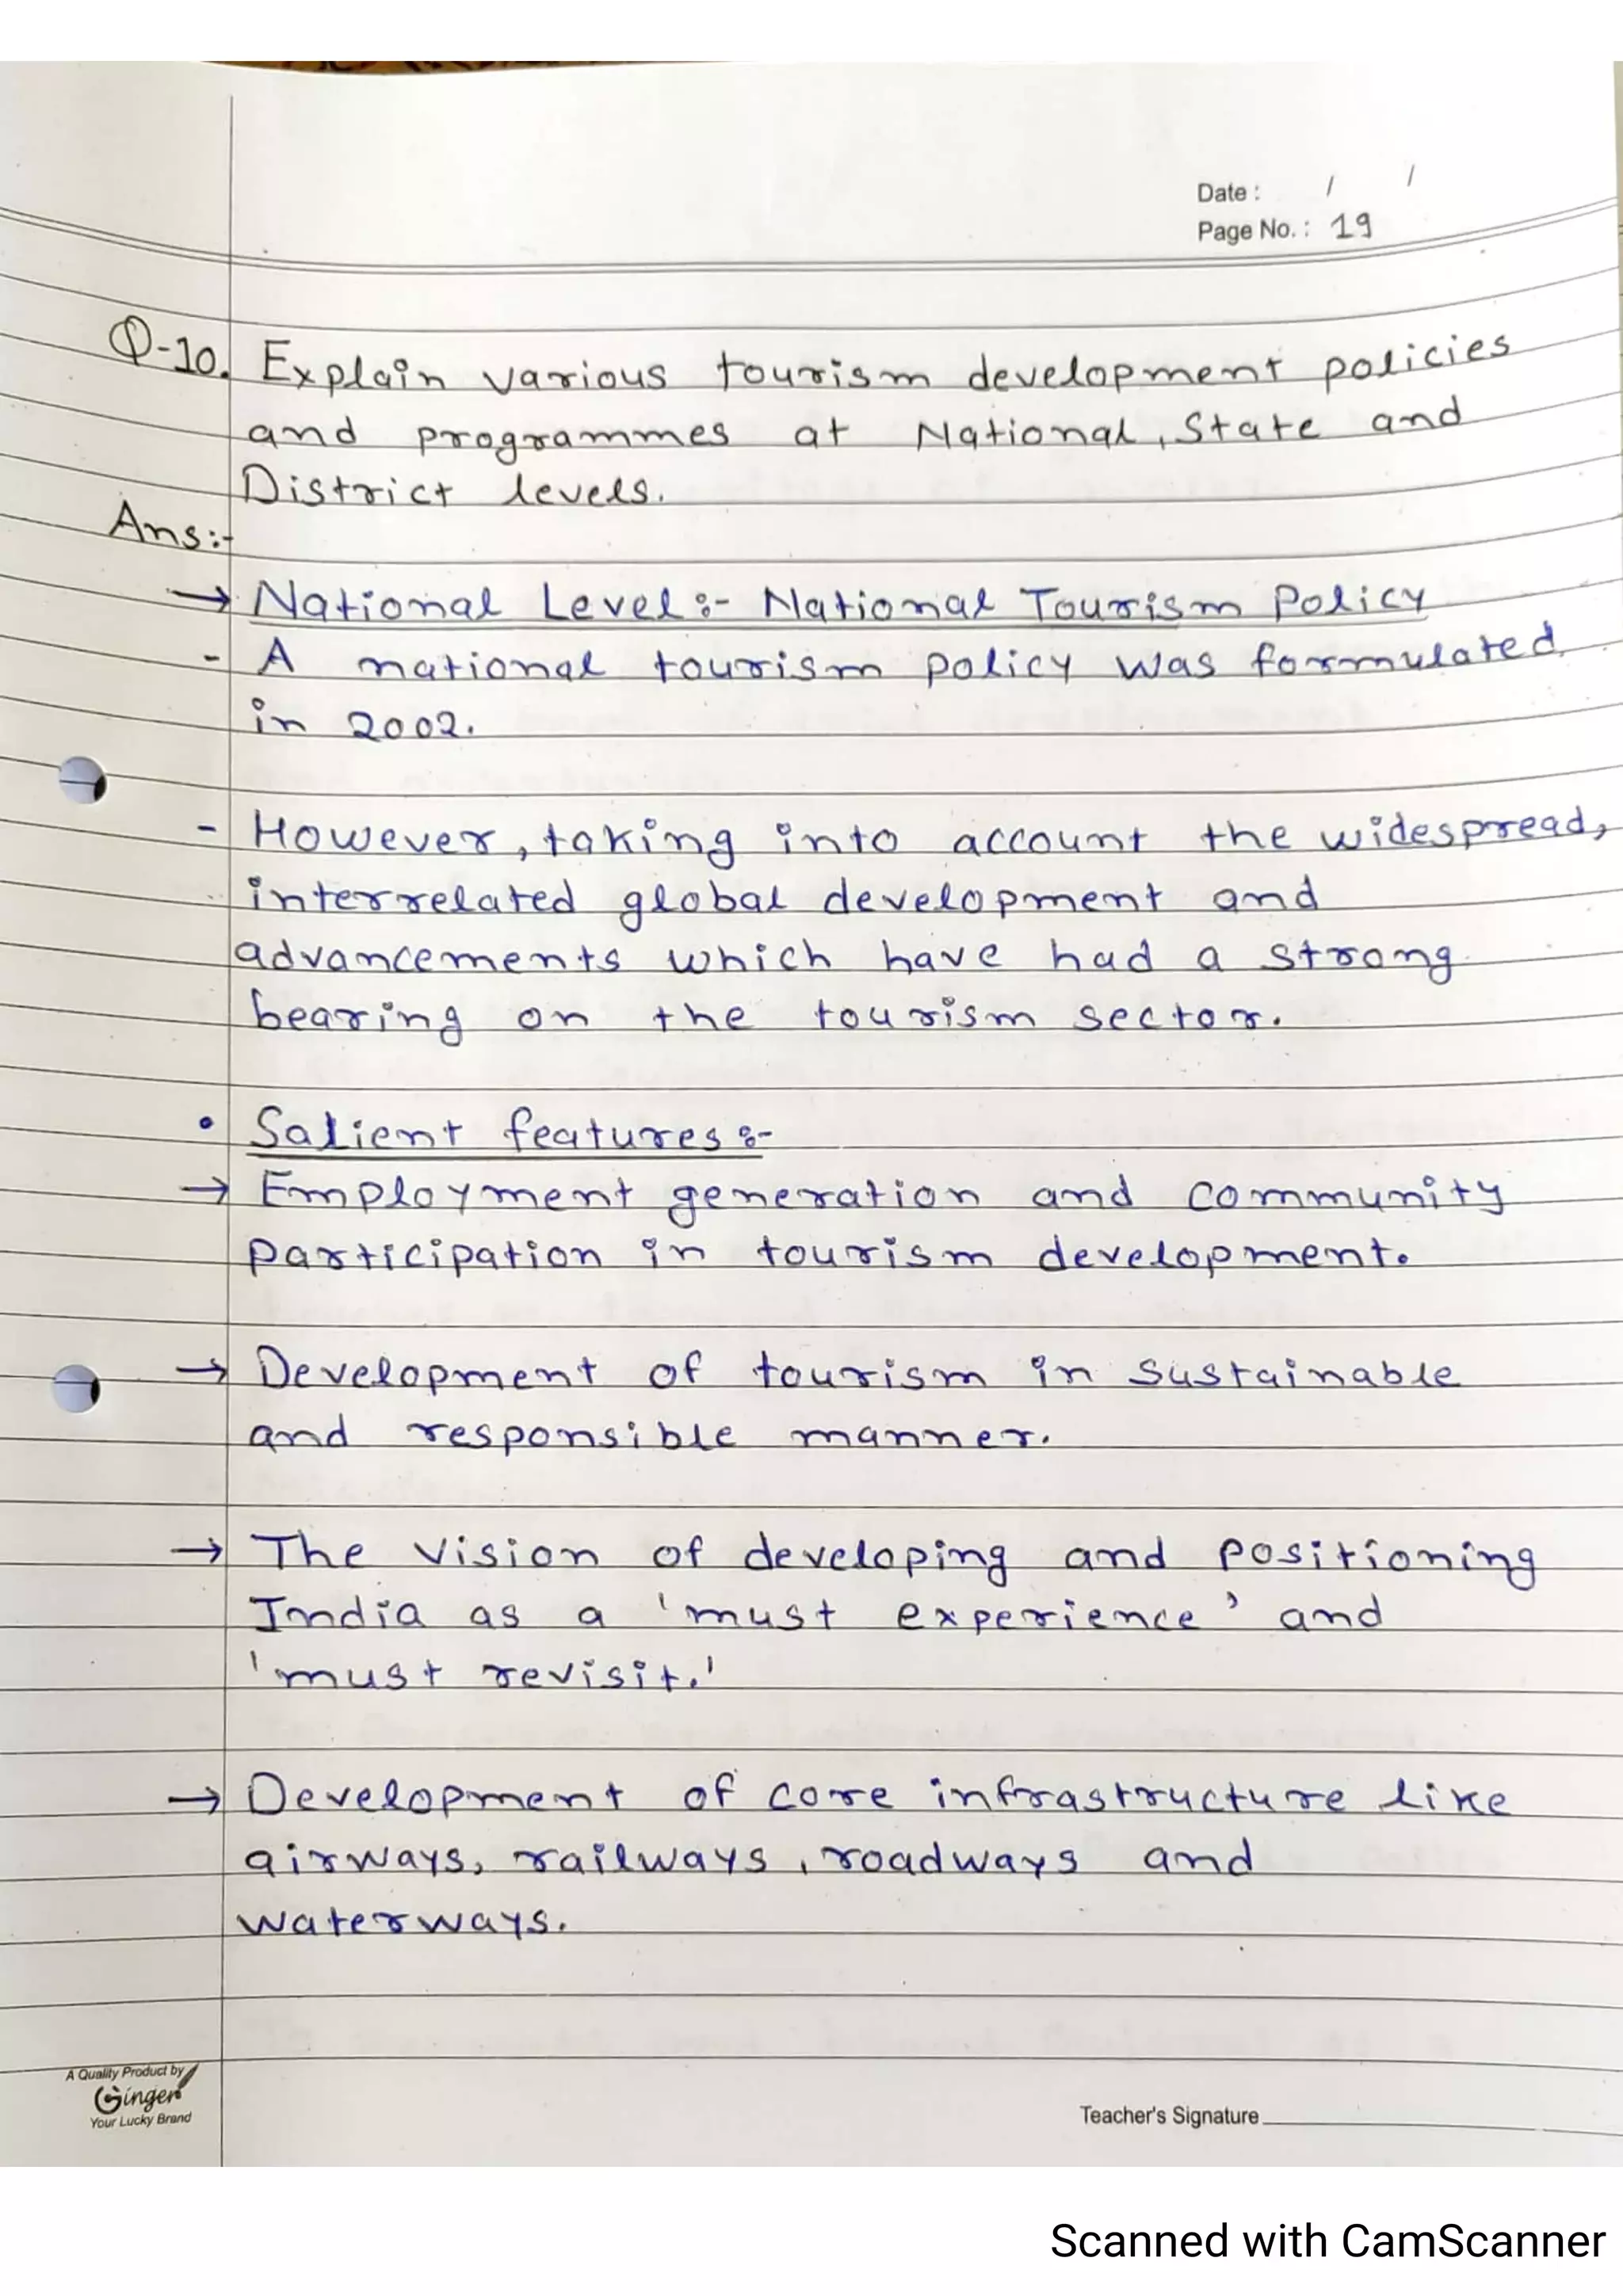 Date : / /
Page No. : 19
Q-10. Explain various tourism development policies
and programmes at National, State and
District levels.
Ans:-
→ National Level :- National Tourism Policy
- A national tourism policy was formulated
in 2002.
- However, taking into account the widespread,
interrelated global development and
advancements which have had a strong
bearing on the tourism sector.
• Salient features :-
→ Employment generation and community
participation in tourism development.
→ Development of tourism in sustainable
and responsible manner.
→ The vision of developing and positioning
India as a 'must experience' and
'must revisit.'
→ Development of core infrastructure like
airways, railways, roadways and
waterways.
A Quality Product by
Ginger
Your Lucky Brand
Teacher's Signature
Scanned with CamScanner